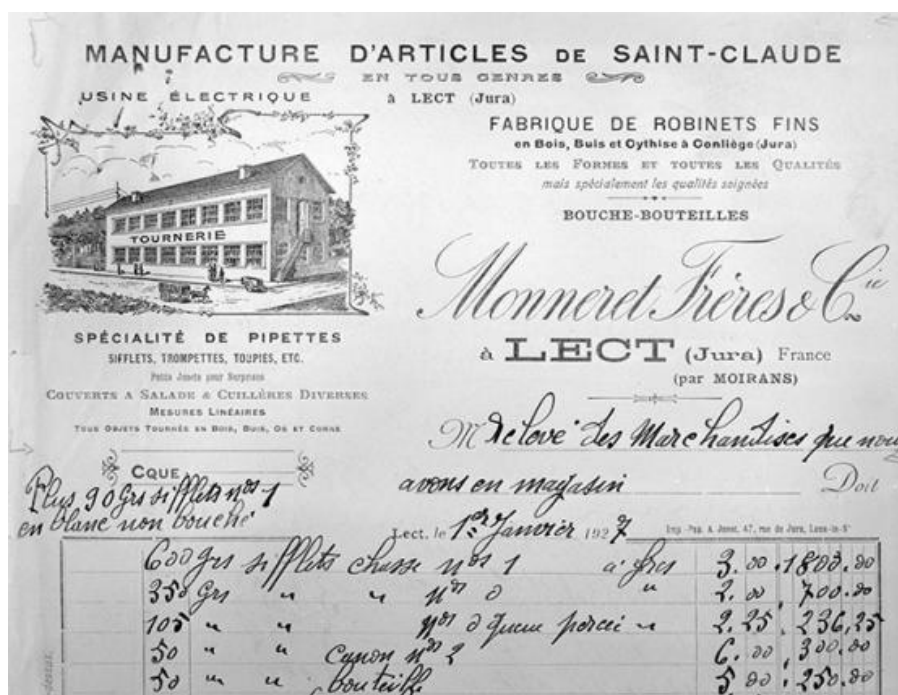 MANUFACTURE D'ARTICLES DE SAINT-CLAUDE
EN TOUS GENRES
à LECT (Jura)
USINE ÉLECTRIQUE
TOURNERIE
SPÉCIALITÉ DE PIPETTES
SIFFLETS, TROMPETTES, TOUPIES, ETC.
Petits Jouets pour Surprises
COUVERTS A SALADE & CUILLÈRES DIVERSES
MESURES LINÉAIRES
TOUS OBJETS TOURNÉS EN BOIS, BUIS, OS ET CORNE
FABRIQUE DE ROBINETS FINS
en Bois, Buis et Cythise à Conliège (Jura)
TOUTES LES FORMES ET TOUTES LES QUALITÉS
mais spécialement les qualités soignées
BOUCHE-BOUTEILLES
Monneret Frères & Cie
à LECT (Jura) France
(par MOIRANS)
M Relevé des Marchandises que nou
avons en magasin Doit
CQUE
Plus 90 Grs sifflets nos 1
en blanc non bouché
Lect, le 1er Janvier 1927
Imp. Pap. A. Jenet, 47, rue de Jura, Lons-le-Sr
600 Grs sifflets chasse nos 1 à fres 3.00 1800.00
350 Grs " " nos 0 " 2.00 700.00
105 " " nos 0 queue percée " 2.25 236,25
50 " " canon nos 2 6.00 300.00
50 " " bouteille 5 00 250.00